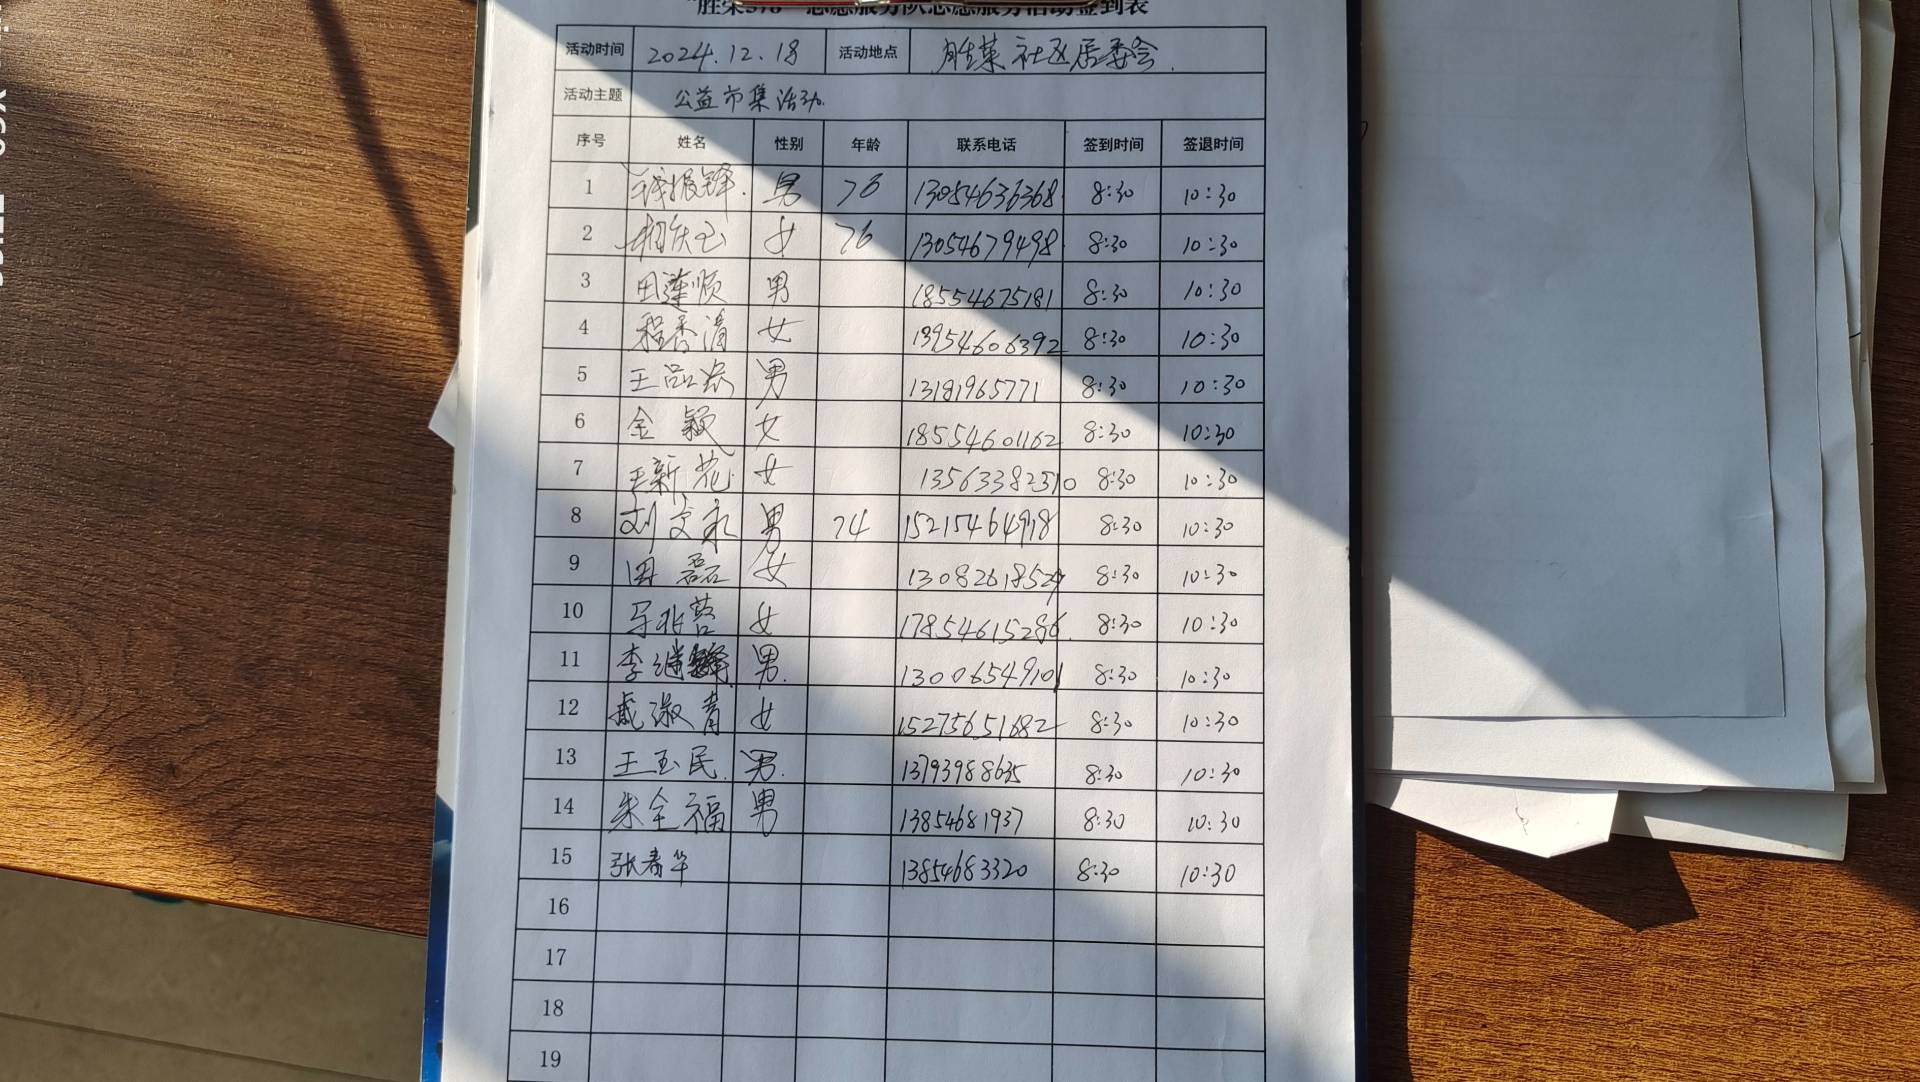 "胜荣576"志愿服务队志愿服务活动签到表
活动时间 2024.12.18 活动地点 胜荣社区居委会
活动主题 公益市集活动
序号 姓名 性别 年龄 联系电话 签到时间 签退时间
1 钱振锋 男 76 13054636368 8:30 10:30
2 女 76 13054679498 8:30 10:30
3 田莲顺 男 18554675181 8:30 10:30
4 程香清 女 13954606392 8:30 10:30
5 王 男 13181965771 8:30 10:30
6 金颖 女 18554601162 8:30 10:30
7 王新花 女 13563382310 8:30 10:30
8 刘文永 男 74 15215464918 8:30 10:30
9 田磊 女 8:30 10:30
10 女 17854615286 8:30 10:30
11 李继锋 男 13006549101 8:30 10:30
12 戚淑青 女 15275651682 8:30 10:30
13 王玉民 男 13793988635 8:30 10:30
14 朱全福 男 13854681937 8:30 10:30
15 张春华 13854683320 8:30 10:30
16
17
18
19